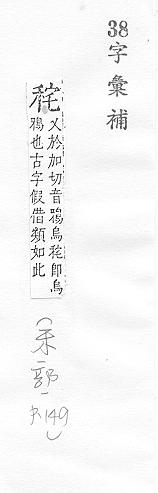 38字彙補
秺
又於加切音鴉烏秺卽烏
鴉也古字假借類如此
(禾部-P.149)